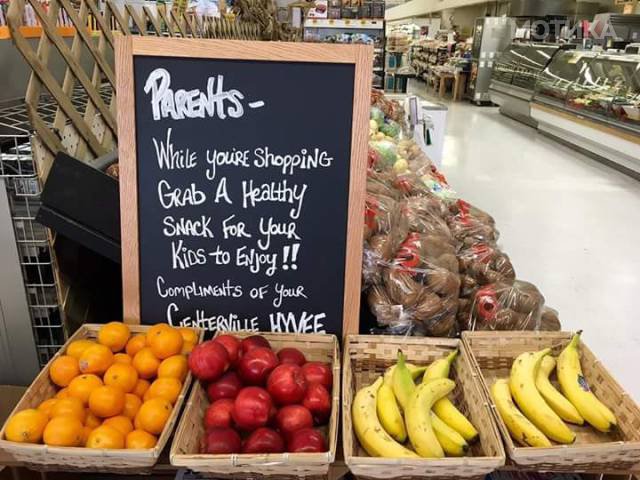 МОТИКА
PARENTS-
WHILE YOU'RE SHOPPING
GRAB A HEALTHY
SNACK FOR YOUR
KIDS-TO ENJOY!!
COMPLIMENTS OF YOUR
CENTERVILLE HYVEE